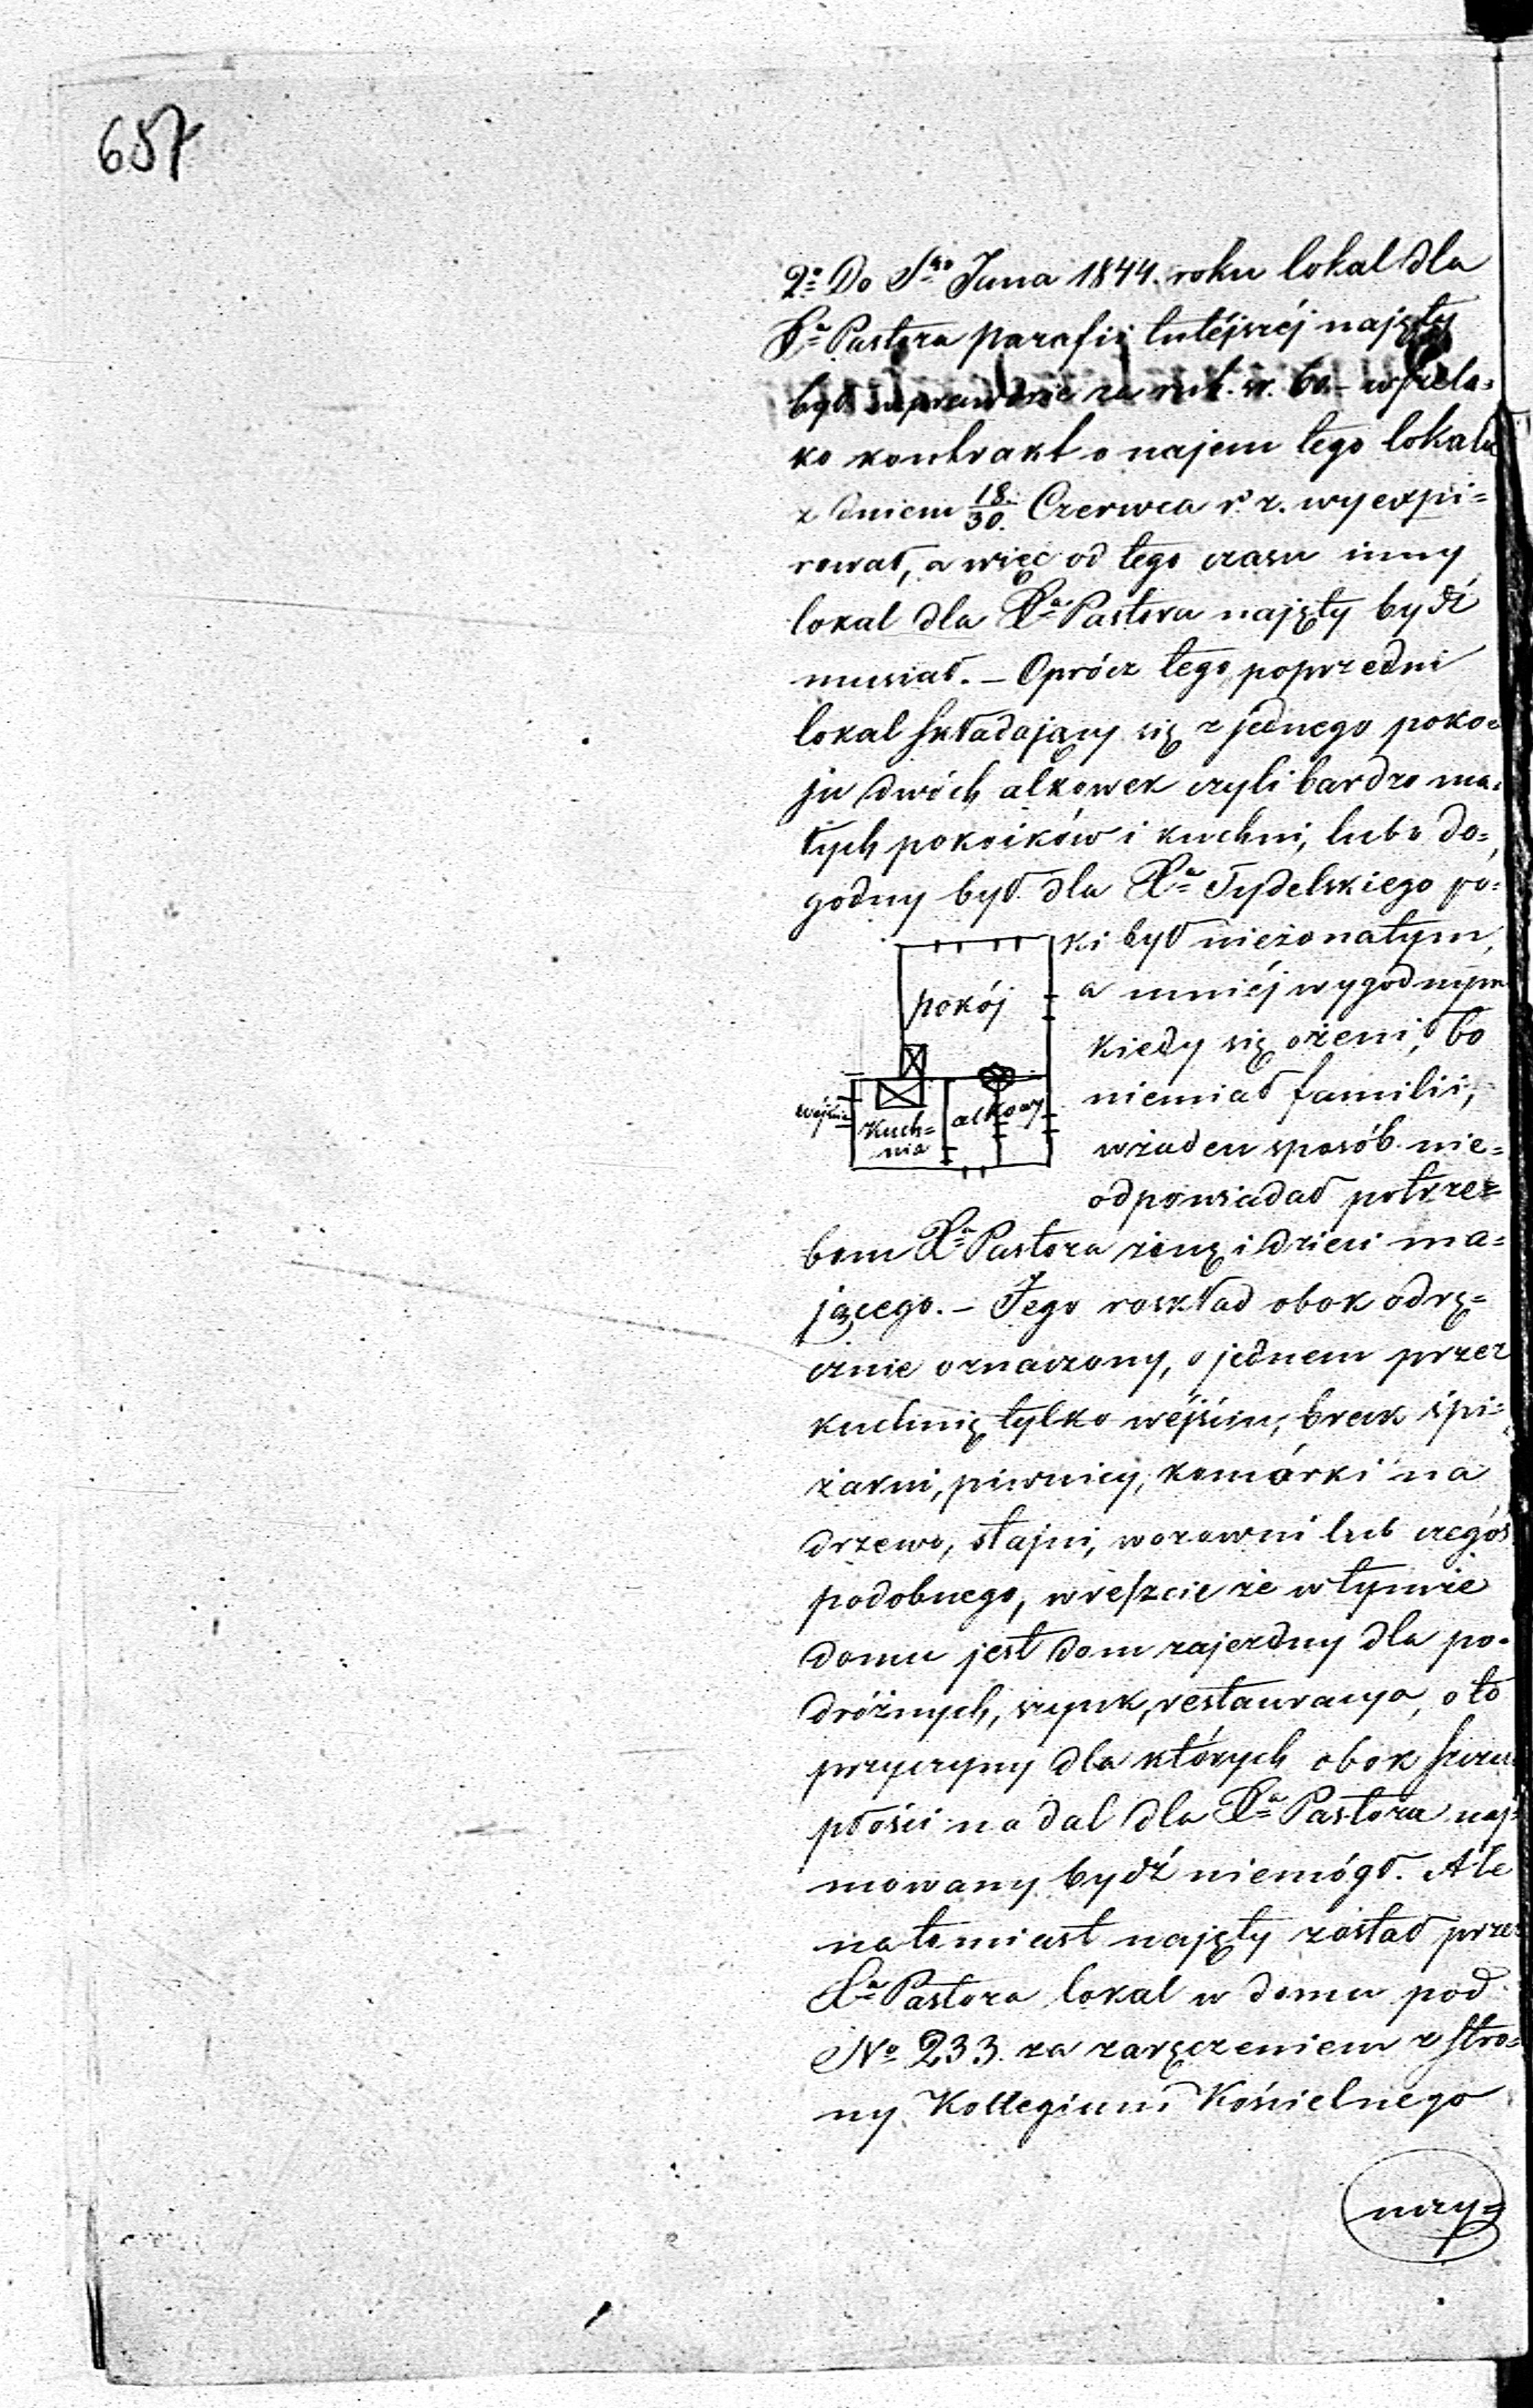 657
2º Do Sgo Jana 1844. roku lokal dla
Xa Pastora parafii tutéjszéj najęty
był wprawdzie za rub. sr. 60.– wszela=
ko kontrakt o najem tego lokalu
z dniem 18./30. Czerwca r. z. wyexpi=
rował, a więc od tego czasu inny
lokal dla Xa Pastora najęty bydź
musiał. – Oprócz tego poprzedni
lokal składający się z jednego poko=
ju dwóch alkowek czyli bardzo ma=
łych pokoików i kuchni, lubo do=
godny był dla Xa Tydelskiego po=
ki był nieżonatym,
a mniéj wygodnym
kiedy się ożenił, bo
niemiał familii,
wżaden sposób nie=
odpowiadał potrze=
pokój
wejście
Kuch=
nia
alkowy
bom Xa Pastora żonę i dzieci ma=
jącego. – Jego roskład obok odrę=
cznie oznaczony, o jednem przez
kuchnię tylko wéjściu, brak śpi=
żarni, piwnicy, komórki na
drzewo, stajni, wozowni lub czegóś
podobnego, wreszcie że w tymże
domu jest dom zajezdny dla po=
dróżnych, szynk, restauracya, oto
przyczyny dla których obok szczu=
płości nadal dla Xa Pastora naj=
mowany bydź niemógł. Ale
natomiast najęty został przez
Xa Pastora lokal w domu pod
No 233. za zaręczeniem z stro=
ny Kollegium Kościelnego